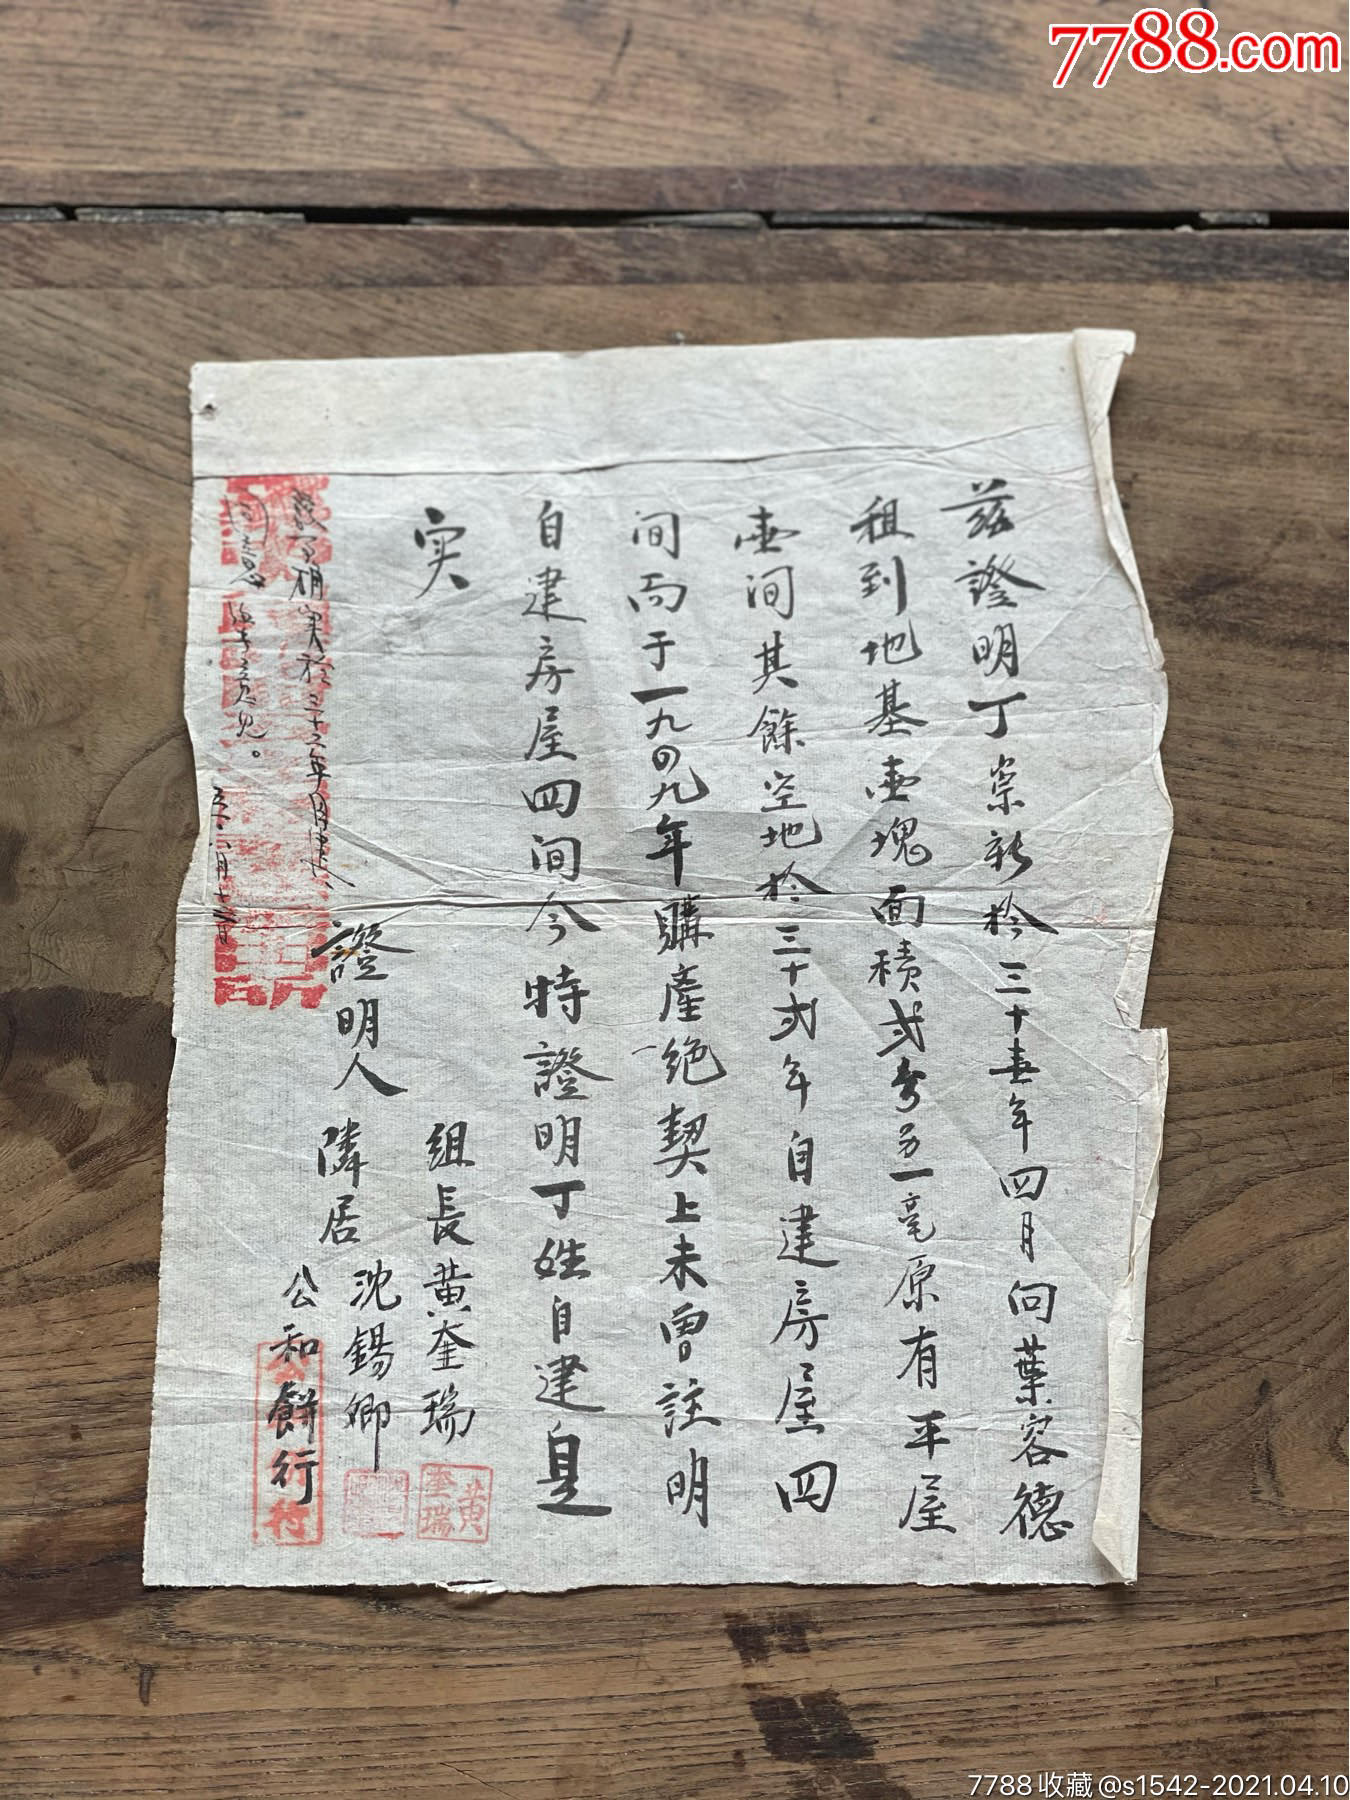 7788.com
茲證明丁崇新於三十壹年四月向葉容德
租到地基壹塊面積弍分另一毫原有平屋
壹间其餘空地於三十弍年自建房屋四
间而于一九四九年購產絶契上未曾註明
自建房屋四间今特證明丁姓自建是
实
證明人
組長黄奎瑞
隣居沈錫卿
公和餅行
黄奎瑞
確实於三十二年
同意
意见。
八月十
7788收藏@s1542-2021.04.10